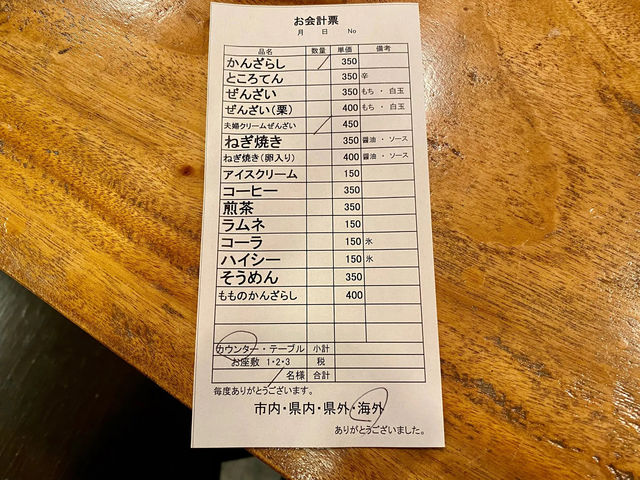 お会計票
月 日 No
品名 数量 単価 備考
かんざらし 350
ところてん 350 辛
ぜんざい 350 もち・白玉
ぜんざい(栗) 400 もち・白玉
夫婦クリームぜんざい 450
ねぎ焼き 350 醤油・ソース
ねぎ焼き(卵入り) 400 醤油・ソース
アイスクリーム 150
コーヒー 350
煎茶 350
ラムネ 150
コーラ 150 氷
ハイシー 150 氷
そうめん 350
もものかんざらし 400
カウンター・テーブル 小計
お座敷 1・2・3 税
名様 合計
毎度ありがとうございます。
市内・県内・県外・海外
ありがとうございました。